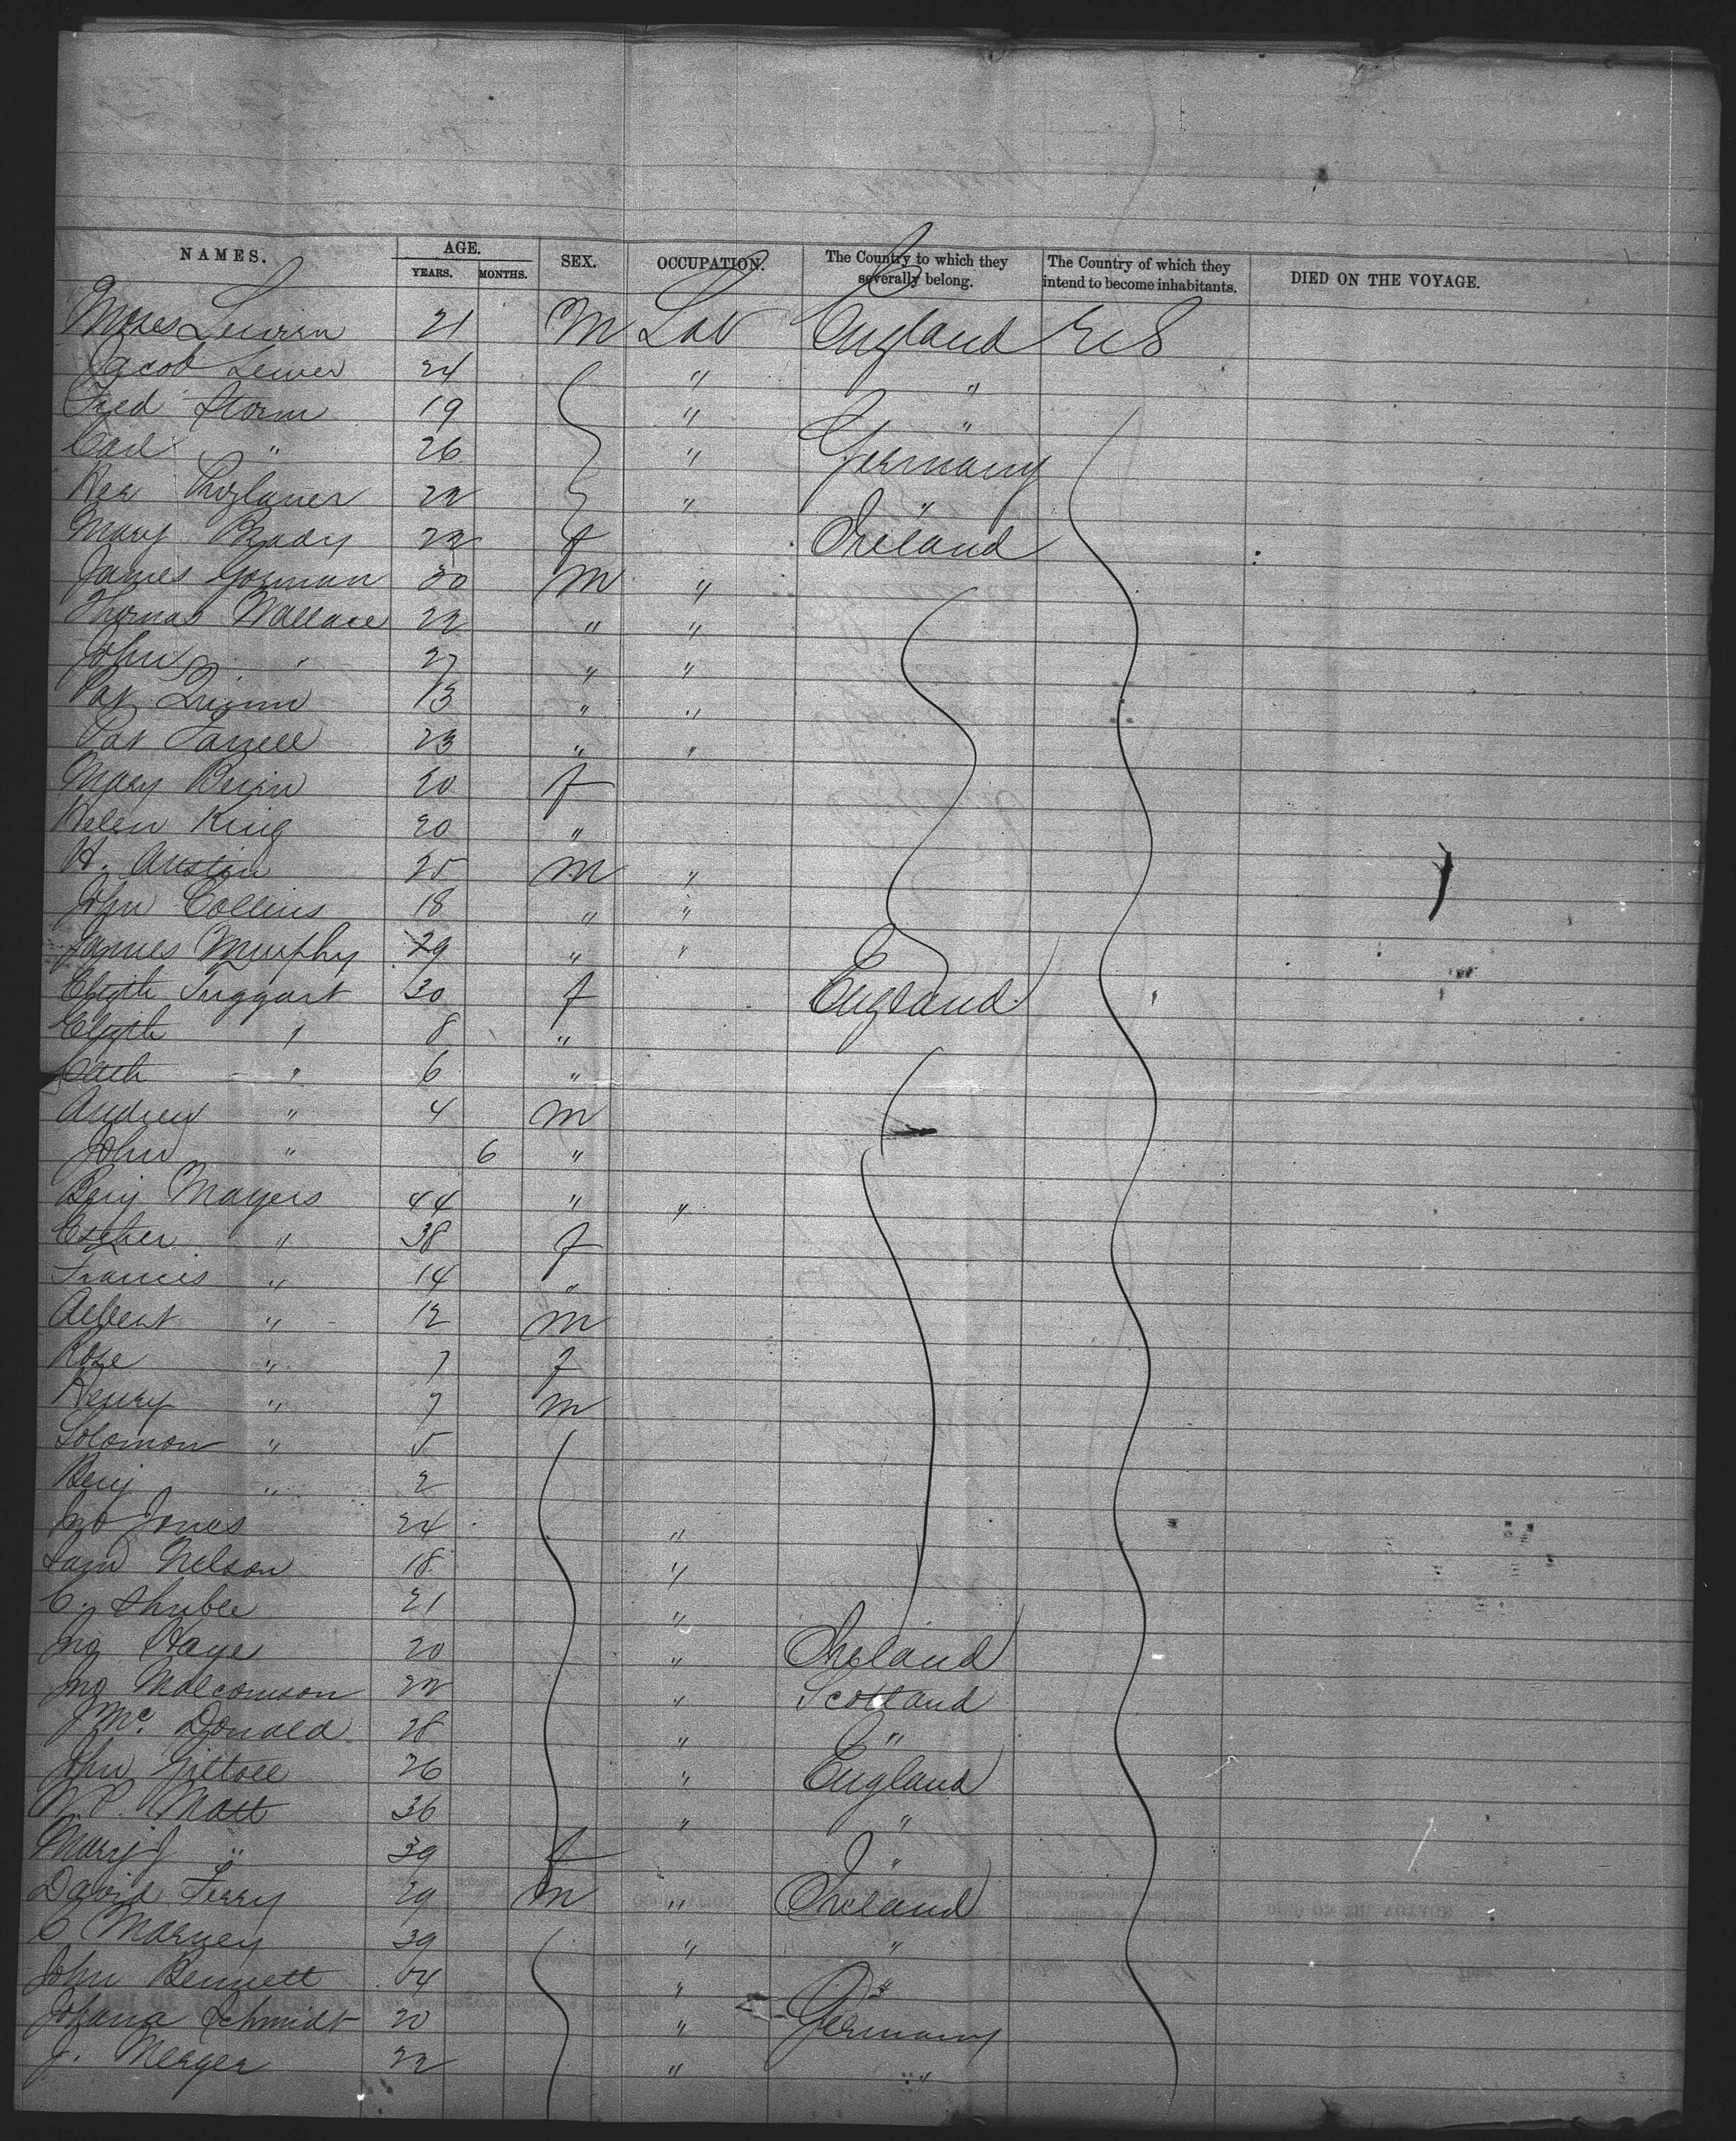 NAMES. AGE. YEARS. MONTHS. SEX. OCCUPATION. The Country to which they severally belong. The Country of which they intend to become inhabitants. DIED ON THE VOYAGE.
Moses 21 M Lab England U S
Jacob 24 " "
Fred Storm 19 " "
Carl " 26 " Germany
22 " "
Mary Brady 22 f Ireland
James Gorman 30 m "
Thomas Wallace 22 " "
John " 27 " "
Pat Quinn 13 " "
Pat Farrell 23 " "
Mary 20 f
Helen King 20 "
H. Austin 25 m "
John Collins 18 " "
James Murphy 29 " "
Taggart 30 f England
" 8 "
Cath " 6 "
Andrew " 4 m
John " 6 "
Benj Mayers 44 " "
Esther " 38 f
Francis " 14 "
Albert " 12 m
Rose " 7 f
Henry " 7 m
Solomon " 5
Benj " 2
Jones 24 "
Sam Nelson 18 "
C. 21 "
Jno Haye 20 " Ireland
Jno Malcomson 22 " Scotland
J Mc. Donald 28 " "
John 26 " England
W. P. Matt 36 " "
Mary J " 39 f "
David Terry 29 m " Ireland
C 39 " "
John Bennett 54 " "
Johana Schmidt 20 " Germany
J. Merger 22 " "